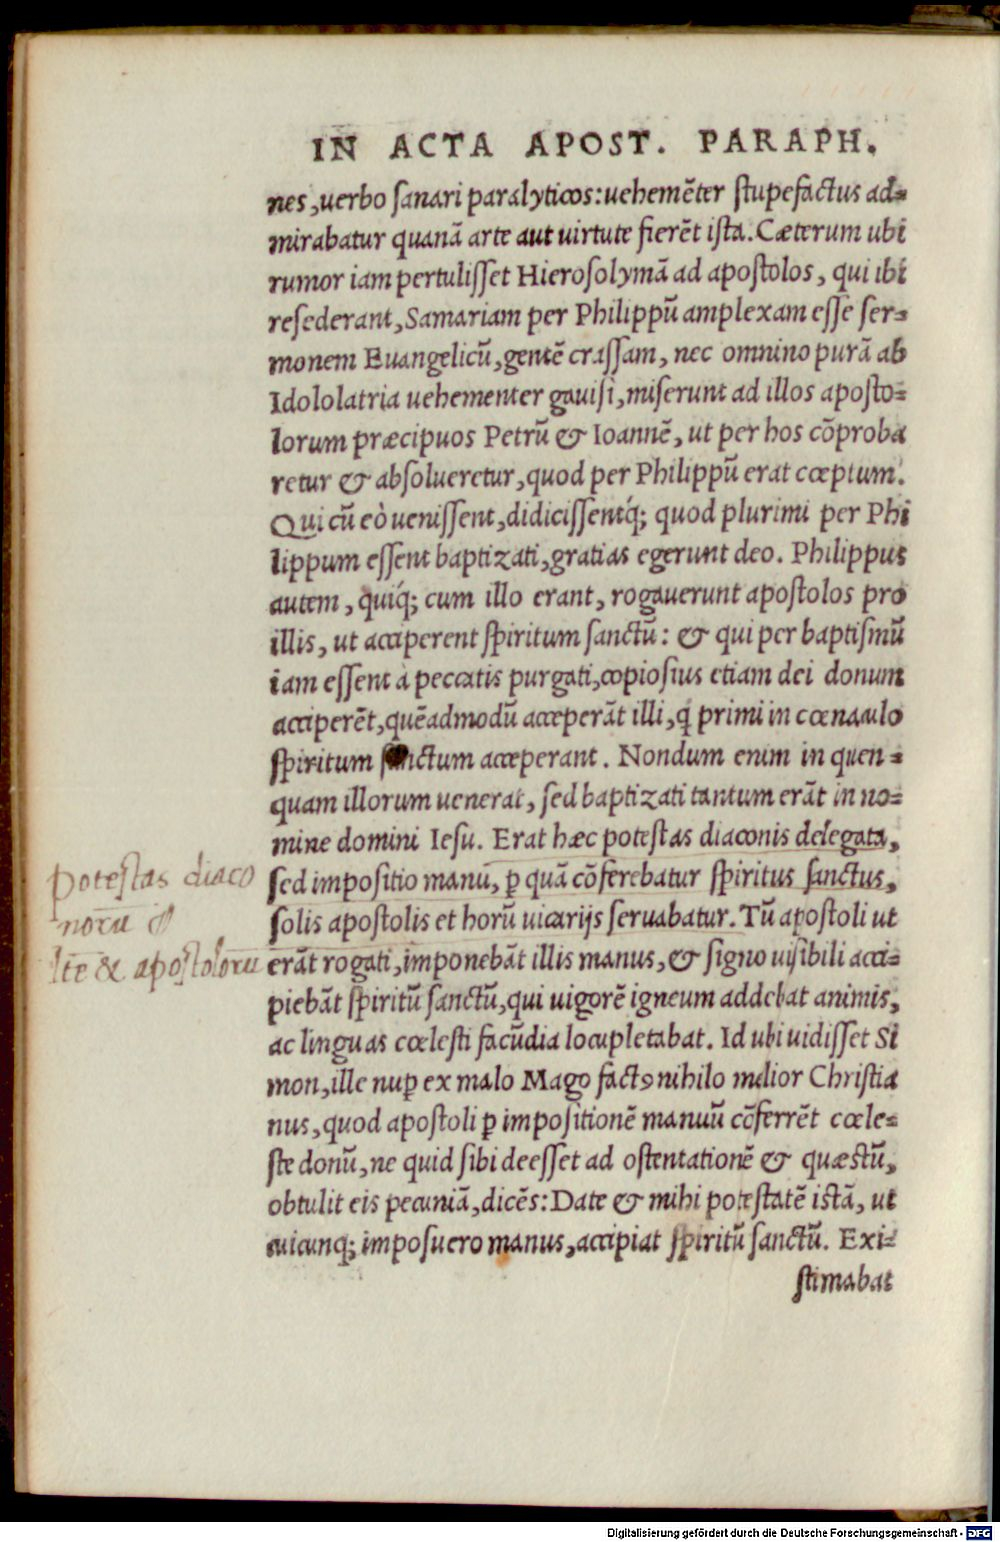 IN ACTA APOST. PARAPH.
nes, uerbo sanari paralyticos: uehemēter stupefactus ad-
mirabatur quanā arte aut uirtute fierēt ista. Cæterum ubi
rumor iam pertulisset Hierosolymā ad apostolos, qui ibi
resederant, Samariam per Philippū amplexam esse ser-
monem Euangelicū, gentē crassam, nec omnino purā ab
Idololatria uehementer gauisi, miserunt ad illos aposto-
lorum præcipuos Petrū & Ioannē, ut per hos cōproba
retur & absolueretur, quod per Philippū erat cœptum.
Qui cū eò uenissent, didicissentq́; quod plurimi per Phi
lippum essent baptizati, gratias egerunt deo. Philippus
autem, quiq́; cum illo erant, rogauerunt apostolos pro
illis, ut acciperent spiritum sanctū: & qui per baptismū
iam essent à peccatis purgati, copiosius etiam dei donum
acciperēt, quēadmodū acceperāt illi, q́ primi in cœnaculo
spiritum sanctum acceperant. Nondum enim in quen-
quam illorum uenerat, sed baptizati tantum erāt in no-
mine domini Iesu. Erat hæc potestas diaconis delegata,
sed impositio manuū, ꝑ quā cōferebatur spiritus sanctus,
solis apostolis et horū uicarijs seruabatur. Tū apostoli ut
erāt rogati, imponebāt illis manus, & signo uisibili acci-
piebāt spiritū sanctū, qui uigorē igneum addebat animis,
ac linguas cœlesti facūdia locupletabat. Id ubi uidisset Si
mon, ille nuꝑ ex malo Mago factꝰ nihilo melior Christia
nus, quod apostoli ꝑ impositionē manuū cōferrēt cœle-
ste donū, ne quid sibi deesset ad ostentationē & quæstū,
obtulit eis pecuniā, dicēs: Date & mihi potestatē istā, ut
cuicunq; imposuero manus, accipiat spiritū sanctū. Exi-
stimabat
Potestas diaco
norū
Itē & apostolorū
Digitalisierung gefördert durch die Deutsche Forschungsgemeinschaft - DFG